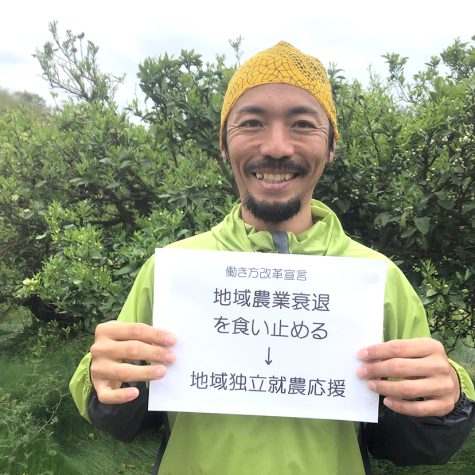 働き方改革宣言
地域農業衰退
を食い止める
↓
地域独立就農応援